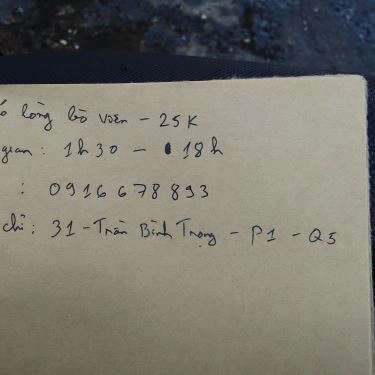 ó lòng bò viên - 25K
gian: 1h30 - 18h
: 0916678893
chỉ: 31 - Trần Bình Trọng - P1 - Q5